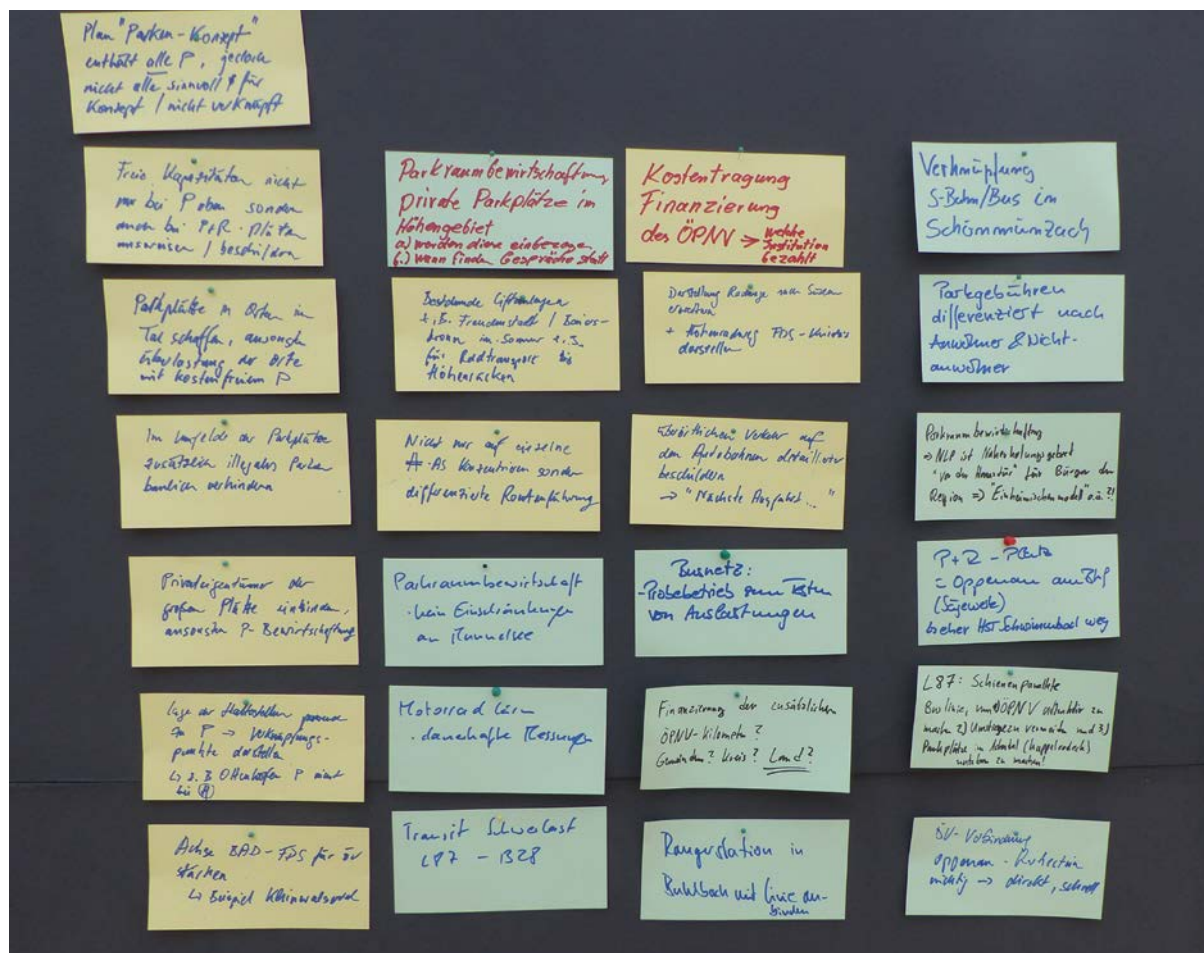 Plan "Parken-Konzept"
enthält alle P, jedoch
nicht alle sinnvoll f für
Konzept / nicht verknüpft
Freie Kapazitäten nicht
nur bei P oben sondern
auch bei P+R-Plätzen
ausweisen / beschildern
Parkplätze in Orten im
Tal schaffen, ansonsten
Überlastung der Orte
mit kostenfreiem P
Im Umfeld der Parkplätze
zusätzlich illegales Parken
baulich verhindern
Privateigentümer der
großen Plätze einbinden,
ansonsten P-Bewirtschaftung
Lage der Haltestellen
zu P → Verknüpfungs-
punkte darstellen
↳ z.B Ottenhöfen P nicht
bei H
Achse BAD-FDS für ÖV
stärken
↳ Beispiel Kleinwalsertal
Parkraumbewirtschaftung
private Parkplätze im
Höhengebiet
a) werden diese einbezogen
b.) wann finden Gespräche statt
Bestehende Liftanlagen
z.B. Freudenstadt / Baiers-
bronn im Sommer
für Radtransport bis
Höhenrücken
Nicht nur auf einzelne
AS konzentrieren sondern
differenzierte Routenführung
Parkraumbewirtschaft
- kein Einschränkungen
an Mummelsee
Motorrad Lärm
- dauerhafte Messungen
Transit Schwerlast
L87 - B28
Kostentragung
Finanzierung
des ÖPNV → welche
Institution
bezahlt
Darstellung Radwege nach Süden
erweitern
+ Höhenradweg FDS-Kniebis
darstellen
Überörtlichen Verkehr auf
den Autobahnen detaillierter
beschildern
→ "Nächste Ausfahrt..."
Busnetz:
- Probebetrieb zum Testen
von Auslastungen
Finanzierung der zusätzlichen
ÖPNV-Kilometer?
Gemeinden? Kreis? Land?
Rangerstation in
Buhlbach mit Linie an-
binden
Verknüpfung
S-Bahn/Bus in
Schönmünzach
Parkgebühren
differenziert nach
Anwohner & Nicht-
anwohner
Parkraumbewirtschaftung
→ NLP ist Naherholungsgebiet
"vor der Haustür" für Bürger der
Region => "Einheimischenmodell" o.ä.?!
P+R - Plätze
= Oppenau am Bhf
(Sägewerk)
bisher HST Schwimmbad weg
L87: Schienenparallele
Buslinie, um 1) ÖPNV attraktiv zu
machen 2) Umstiege zu vermeiden und 3)
Parkplätze in Achertal (Kappelrodeck)
nutzbar zu machen!
ÖV-Verbindung
Oppenau - Ruhestein
wichtig → direkt, schnell